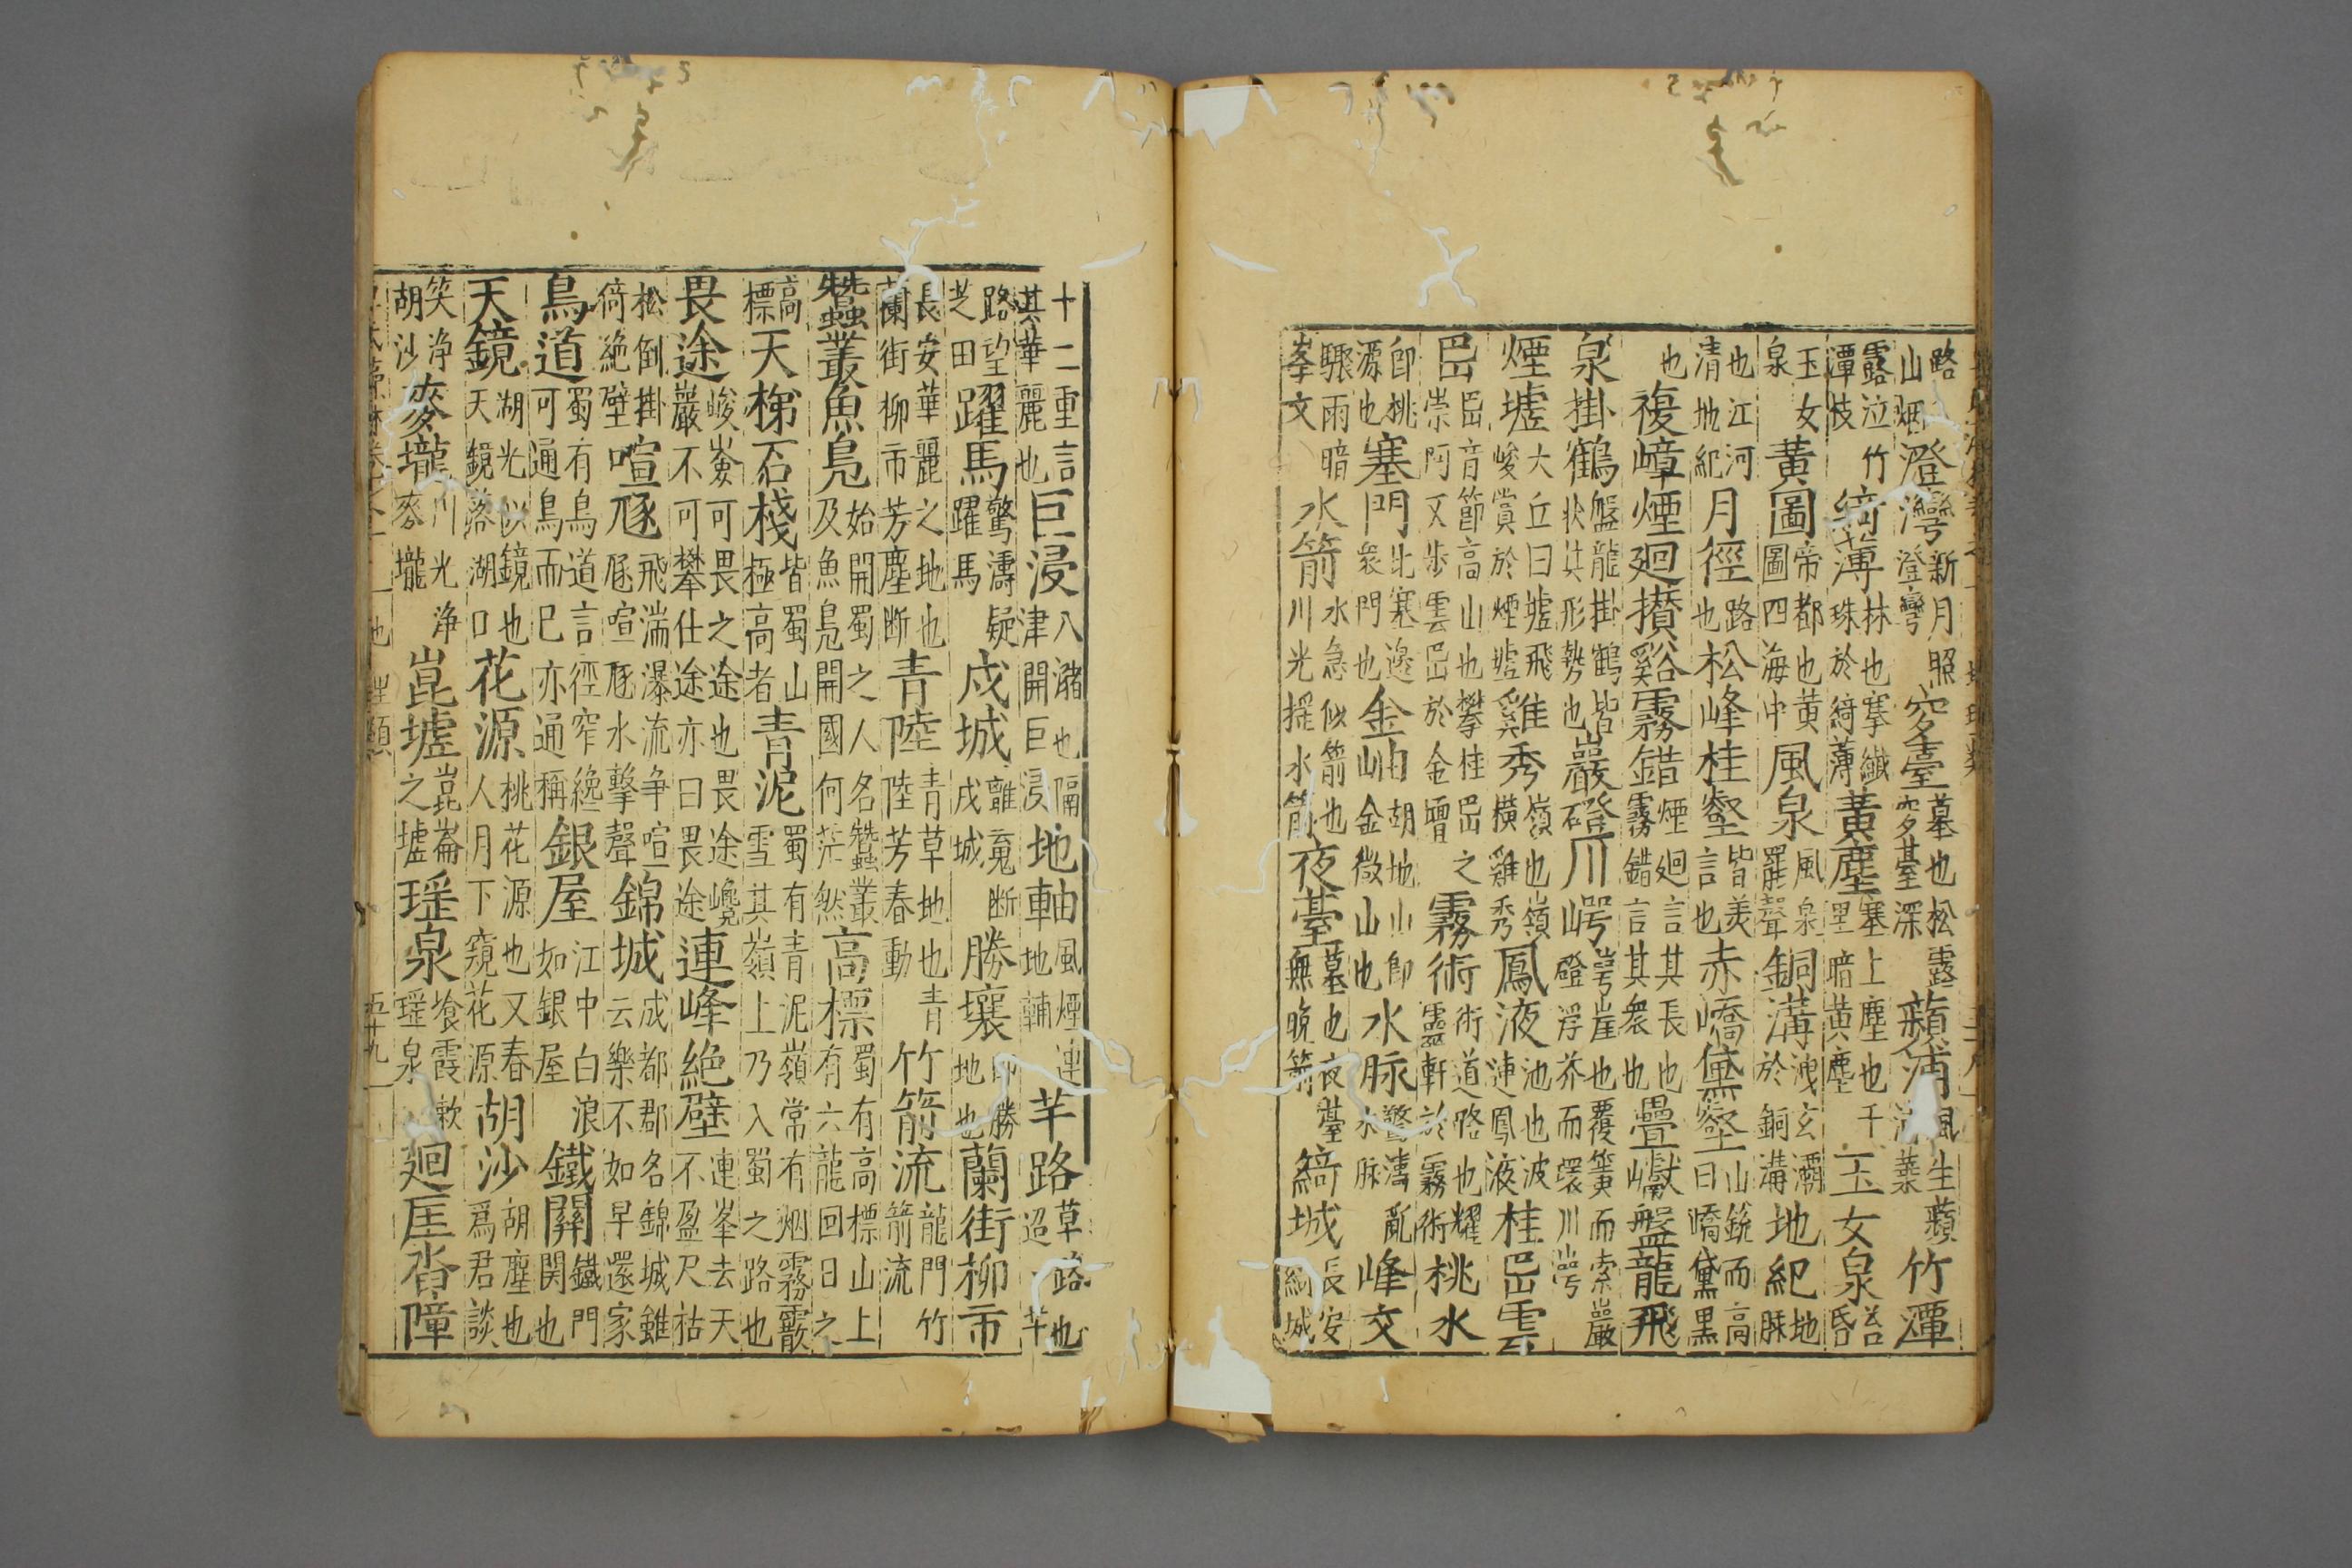 路山烟澄灣新月照澄彎窔臺墓也松露窔䑓深蘋浦風生蘋浦葉竹潭
露泣竹潭枝綺薄林也搴纖珠於綺薄黃塵塞上塵也千里暗黄塵玉女泉善昏
玉女泉黃圖帝都也黄圖四海中風泉風泉罷聲銅溝洩玄灞於銅溝地紀地脉
也江河清地紀月徑路也松峰桂壑皆美言也赤嶠黛壑山銳而高曰嶠黛黑
也複嶂煙廻攅谿霧錯煙廻言其長也霧錯言其衆也疊巘盤龍飛
泉掛鶴盤龍掛鶴皆狀其形勢也巖磴川崿崿崖也覆簣而索巖磴浮芥而環川崿
煙墟大丘曰墟飛峻賞於煙墟雞秀嶺也嶺橫雞秀鳳液池也波連鳳液桂岊雲
岊岊音節高山也攀桂岊之崇阿又步雲岊於金曾霧術術道路也耀靈軒於霧術桃水
卽桃源也塞門北塞邊衆門也金岫胡地山卽金微山也水脉驚濤亂水脉峰交
驟雨暗峯文水箭水急似箭也川光搖水箭夜臺墓也夜䑓無晚箭綺城長安綺城
十二重言其華麗也巨浸八瀦也隔津開巨浸地軸風煙連地輔芉路草路也迢芉
路望芝田躍馬驚濤疑躍馬戍城離魂断戍城勝壤卽勝地也蘭街柳市
長安華麗之地也蘭街柳市芳塵断青陸青草地也青陸芳春動竹箭流龍門竹箭流
蠶叢魚鳧始開蜀之人名蠶叢及魚鳧開國何茫然高標蜀有高標山上有六龍回日之
高標天梯石棧皆蜀山極高者青泥蜀有青泥嶺常有烟霧霰雪其嶺上乃入蜀之路也
畏途峻嶮可畏之途也畏途巉巖不可攀仕途亦曰畏途連峰絶壁連峯去天不盈尺祜
松倒掛倚絶壁喧豗飛湍瀑流争喧豗豗水擊聲錦城成都郡名錦城雖云樂不如早還家
鳥道蜀有鳥道言徑窄纔可通鳥而巳亦通稱銀屋江中白浪如銀屋鐵關鐵門関也
天鏡湖光似鏡也天鏡落湖口花源桃花源也又春人月下窺花源胡沙胡塵也爲君談
笑浄胡沙麥壠川光浄麥壠崑墟崑崙之墟瑤泉飡霞漱瑤泉廻厓沓障